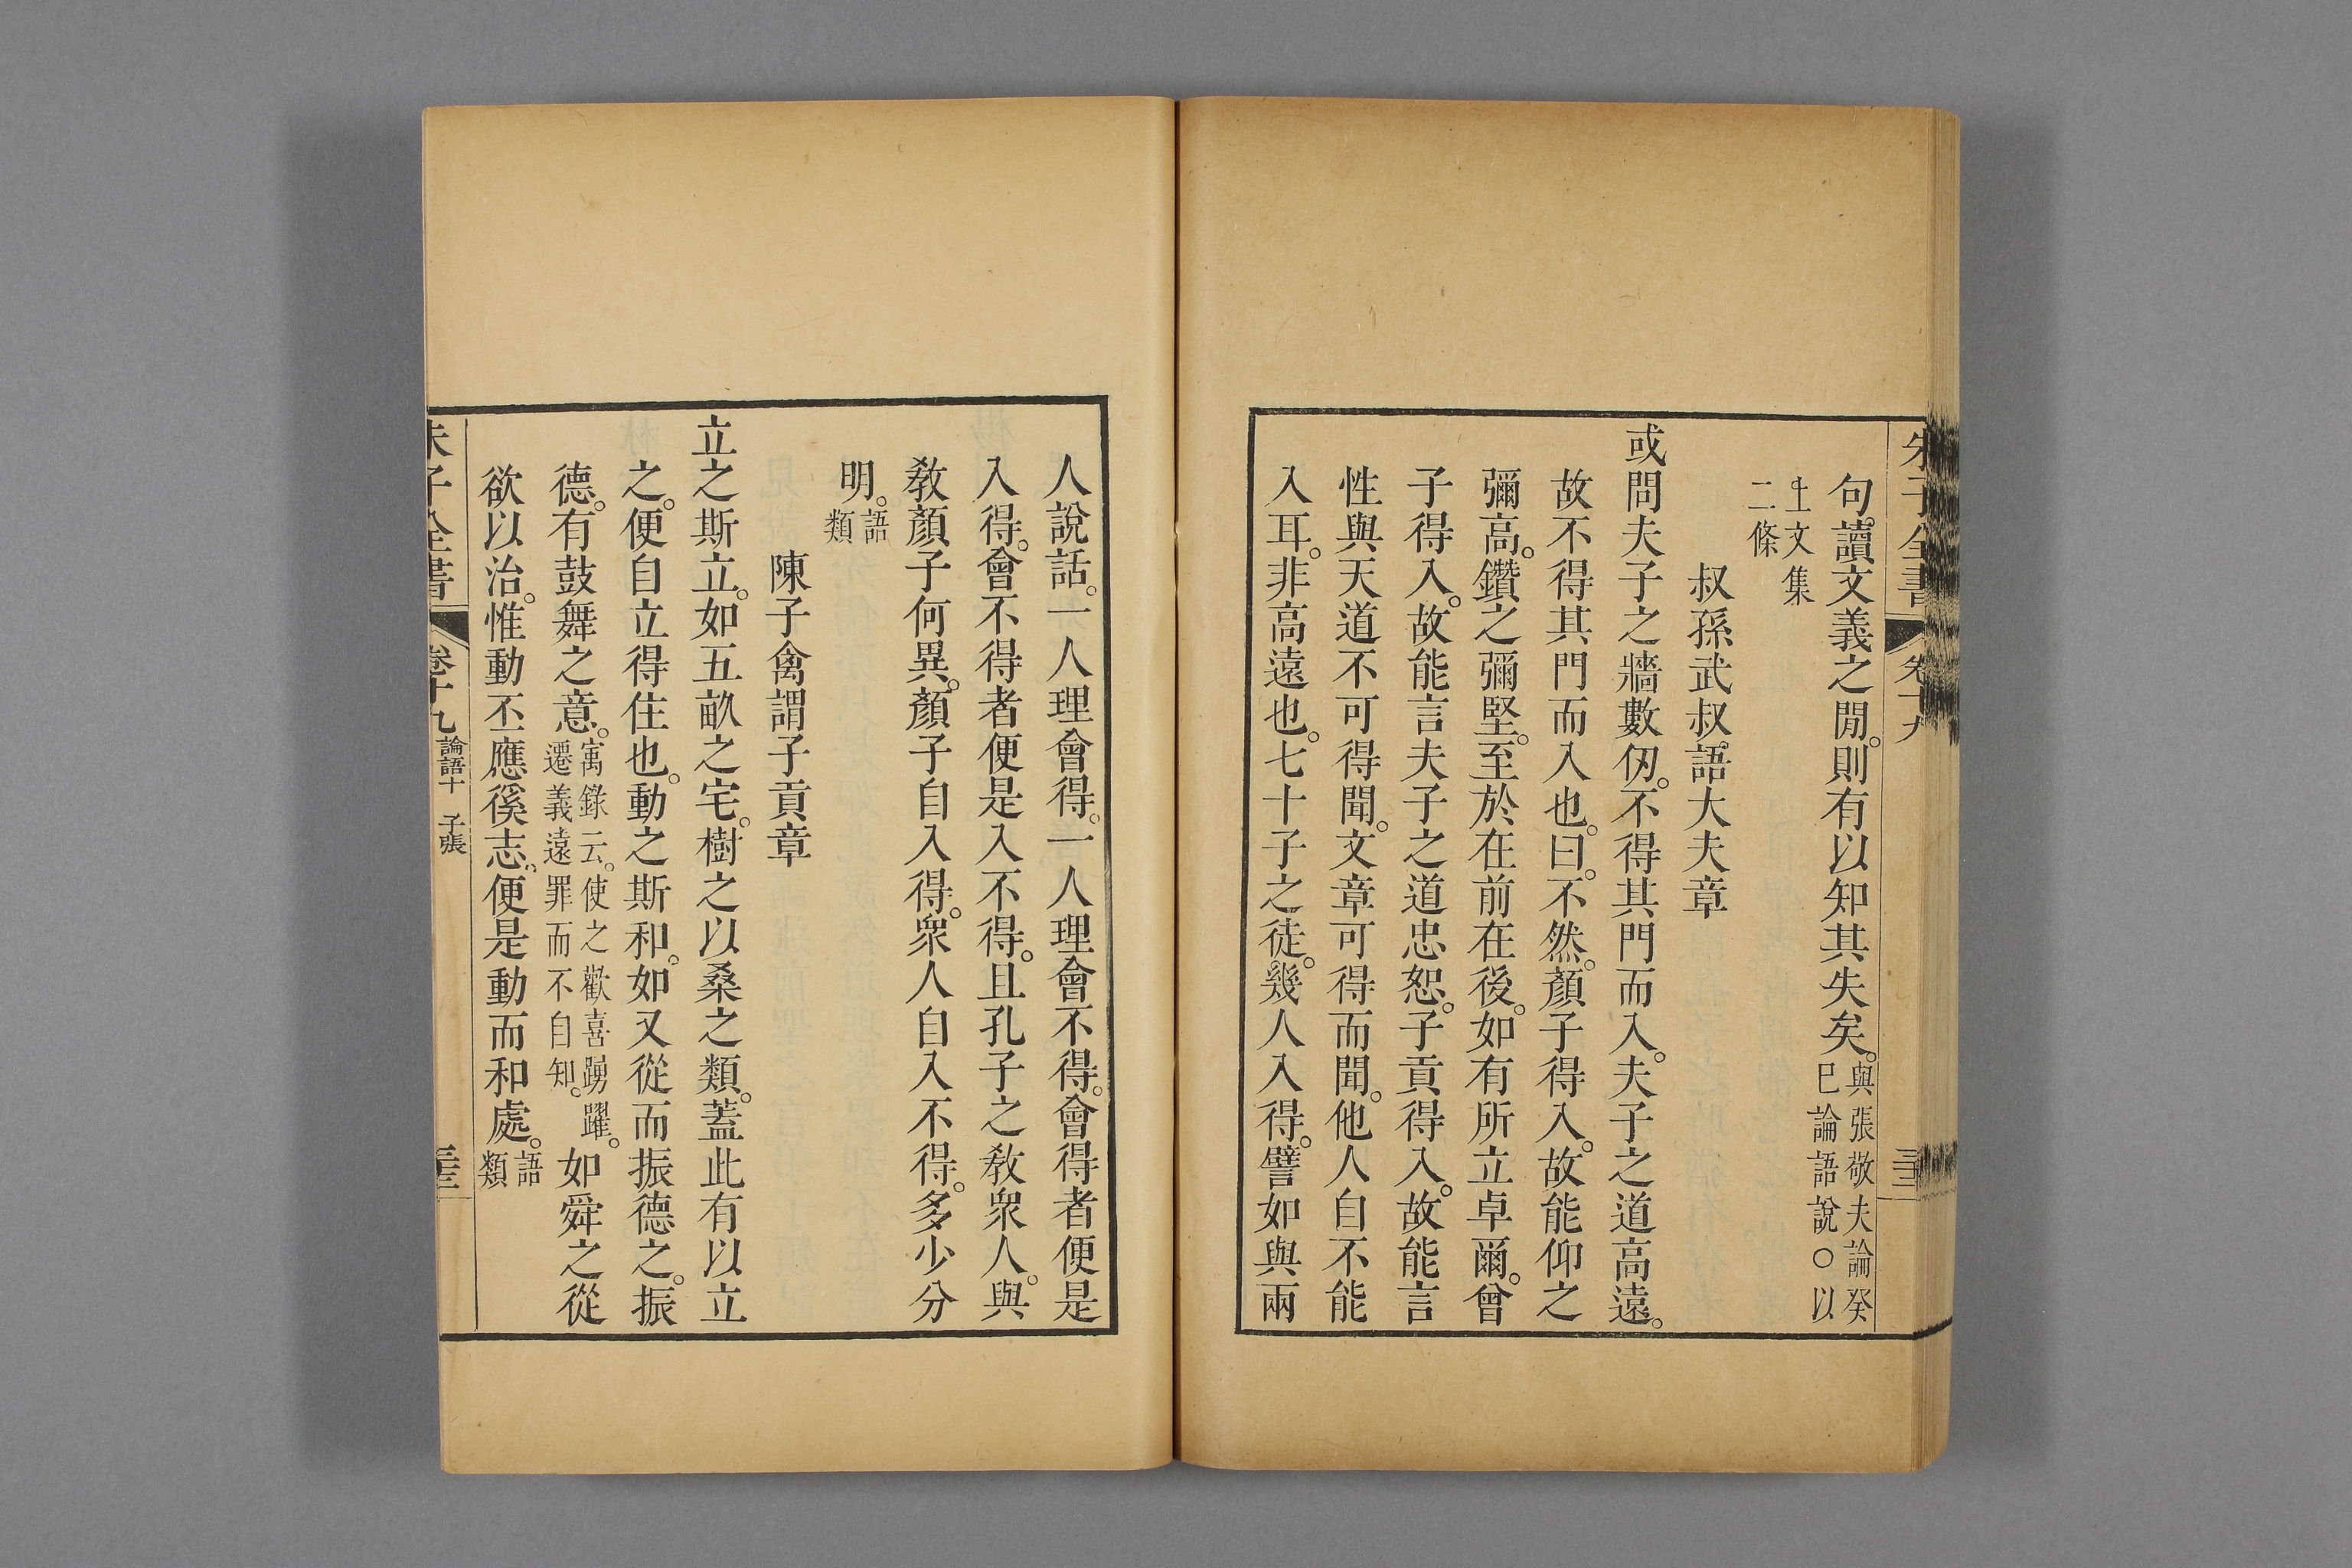 朱子全書 卷十九
句。讀文義之閒。則有以知其失矣。與張敬夫論癸
巳論語說○以
上文集
二條
叔孫武叔語大夫章
或問夫子之牆數仞。不得其門而入。夫子之道高遠。
故不得其門而入也。曰。不然。顏子得入。故能仰之
彌高。鑽之彌堅。至於在前在後。如有所立卓爾。曾
子得入。故能言夫子之道忠恕。子貢得入。故能言
性與天道不可得聞。文章可得而聞。他人自不能
入耳。非高遠也。七十子之徒。幾人入得。譬如與兩
人說話。一人理會得。一人理會不得。會得者便是
入得。會不得者便是入不得。且孔子之敎衆人。與
敎顏子何異。顏子自入得。衆人自入不得。多少分
明。語
類
陳子禽謂子貢章
立之斯立。如五畝之宅。樹之以桑之類。蓋此有以立
之。便自立得住也。動之斯和。如又從而振德之。振
德。有鼓舞之意。㝢錄云。使之歡喜踴躍。
遷義遠罪而不自知。如舜之從
欲以治。惟動丕應徯志。便是動而和處。語
類
朱子全書 卷十九 論語十 子張